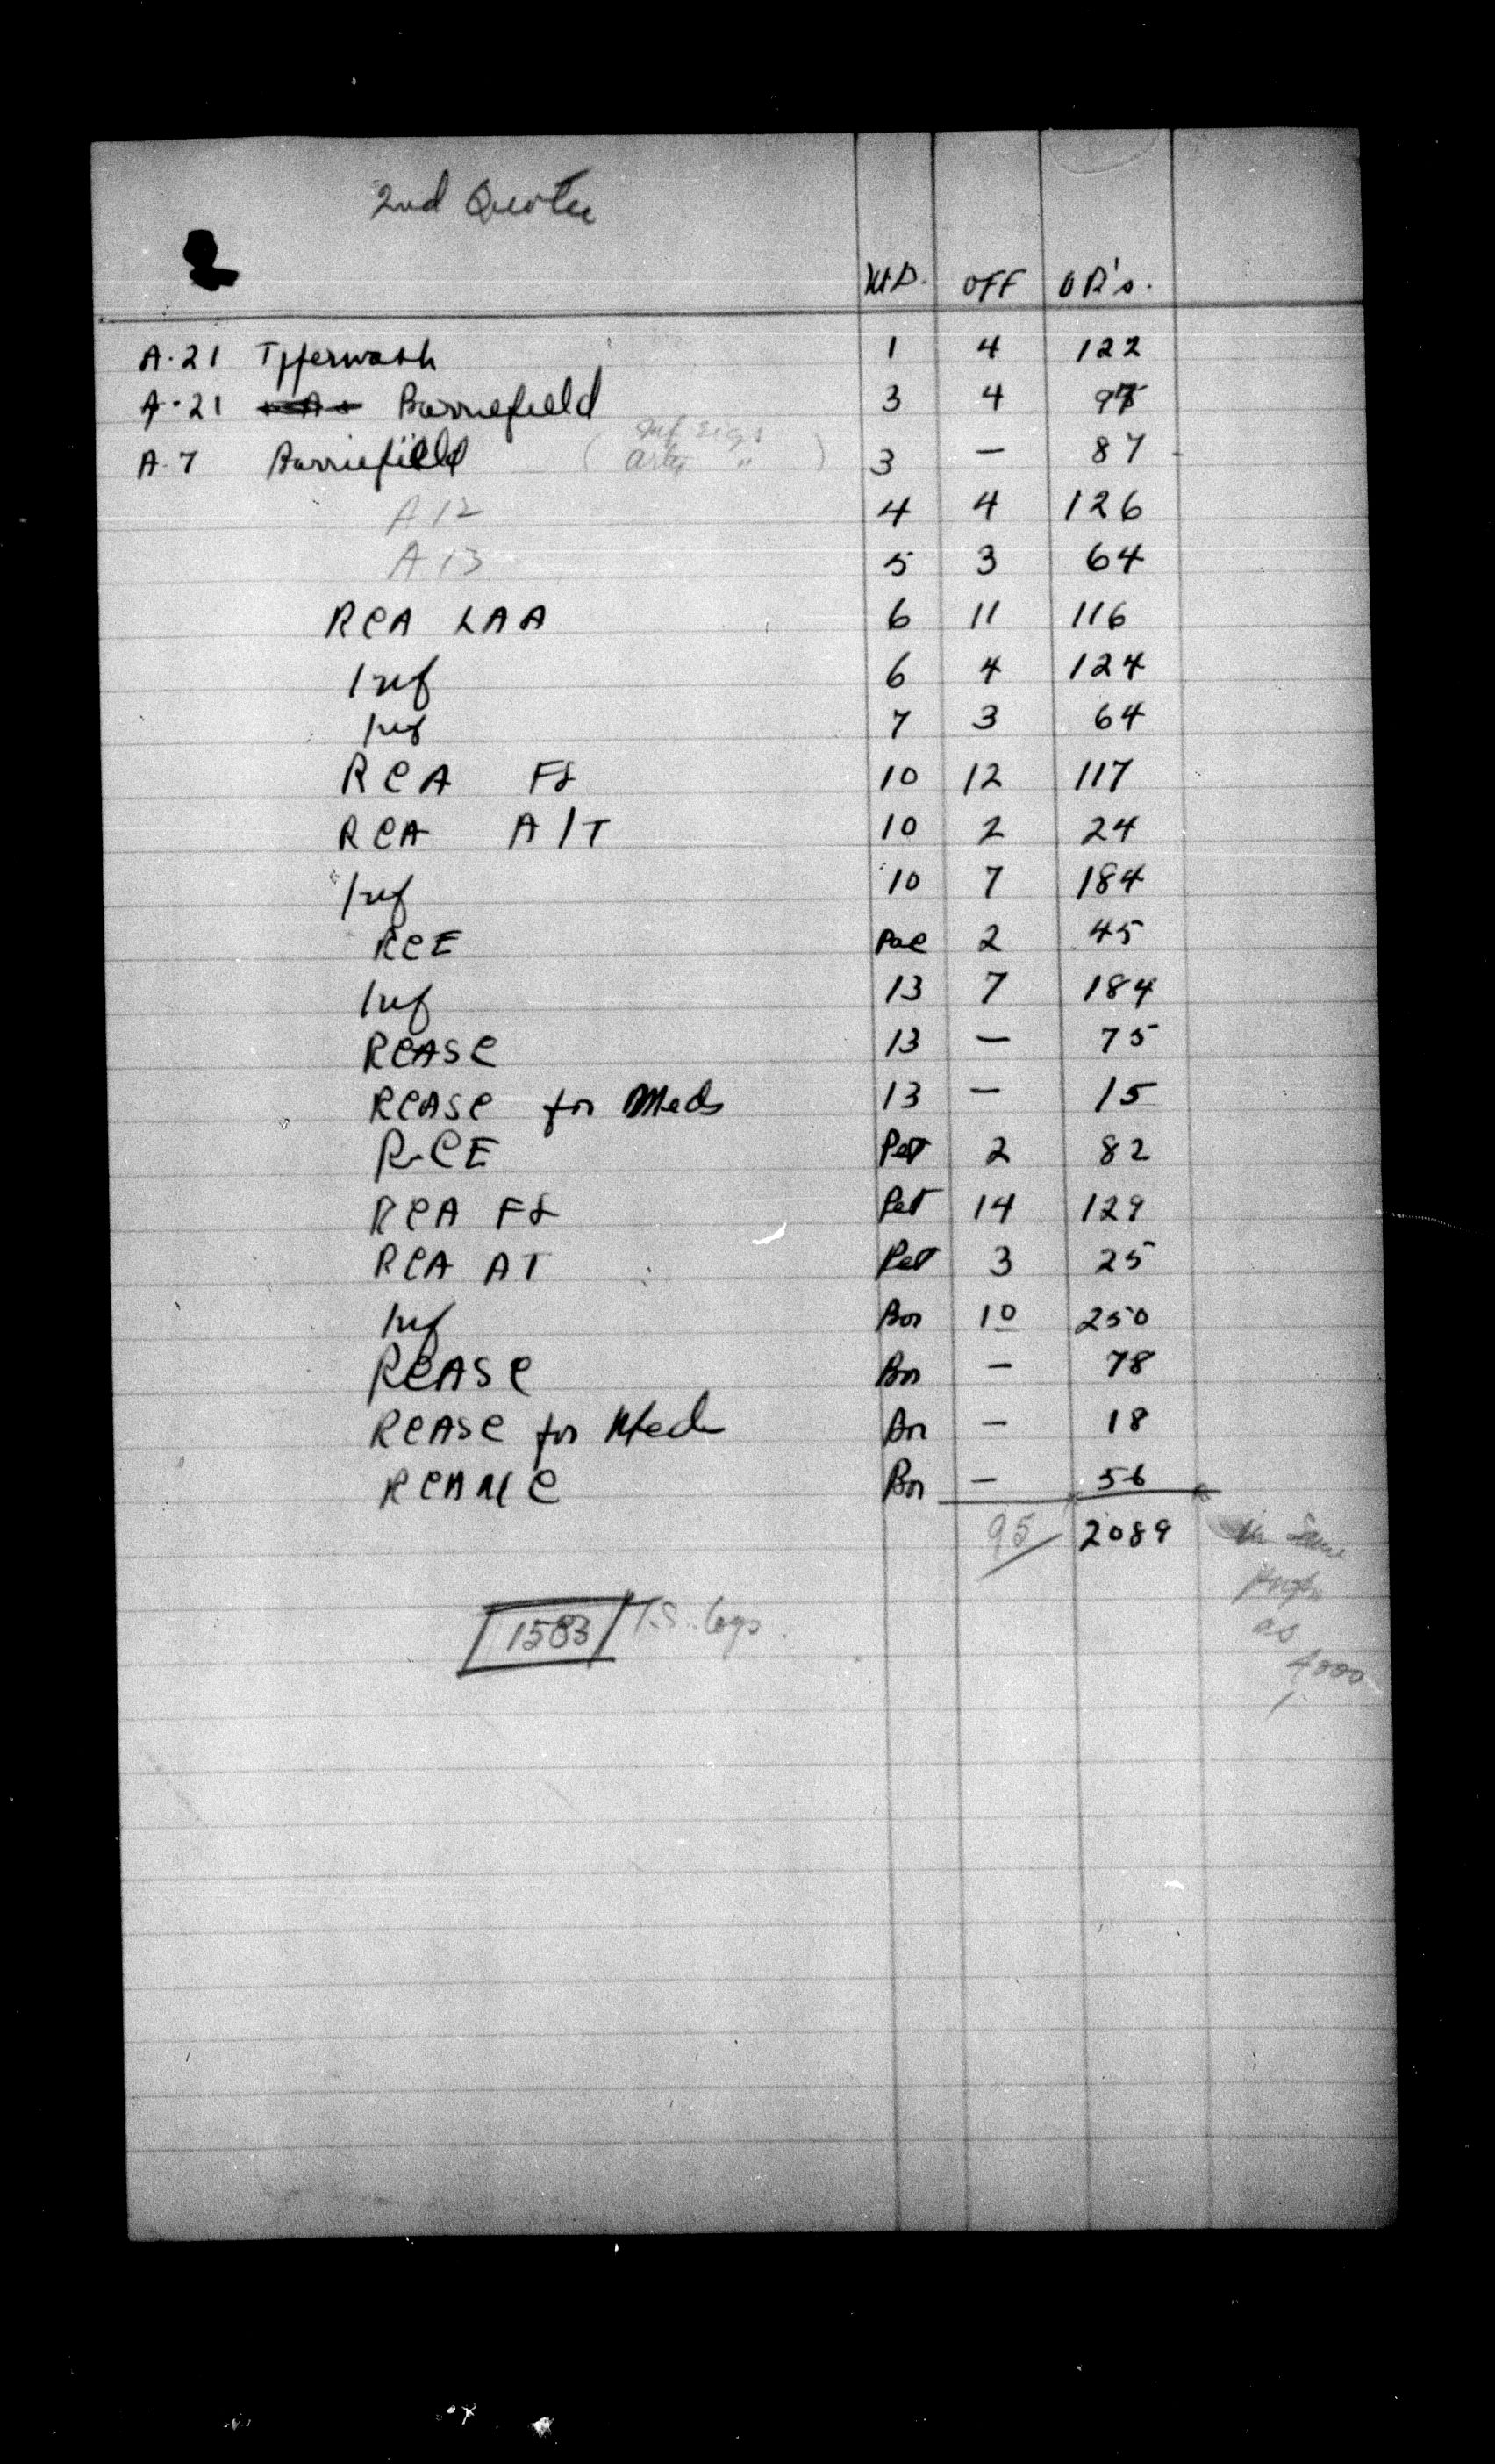 2nd Quota
2
M.D. OFF OR's.
A·21 Ipperwash 1 4 122
A·21 Barriefield 3 4 97
A·7 Barriefield ( Inf Sigs 3 — 87
Arty " )
A 12 4 4 126
A 13 5 3 64
RCA LAA 6 11 116
Inf 6 4 124
Inf 7 3 64
RCA Fd 10 12 117
RCA A/T 10 2 24
Inf 10 7 184
RCE Pac 2 45
Inf 13 7 184
RCASC 13 — 75
RCASC for Meds 13 — 15
RCE Pet 2 82
RCA Fd Pet 14 129
RCA AT Pet 3 25
Inf Bor 10 250
RCASC Bor — 78
RCASC for Med Bor — 18
RCAMC Bor — 56
95 2089
in same
as
4000
1583 T.S.